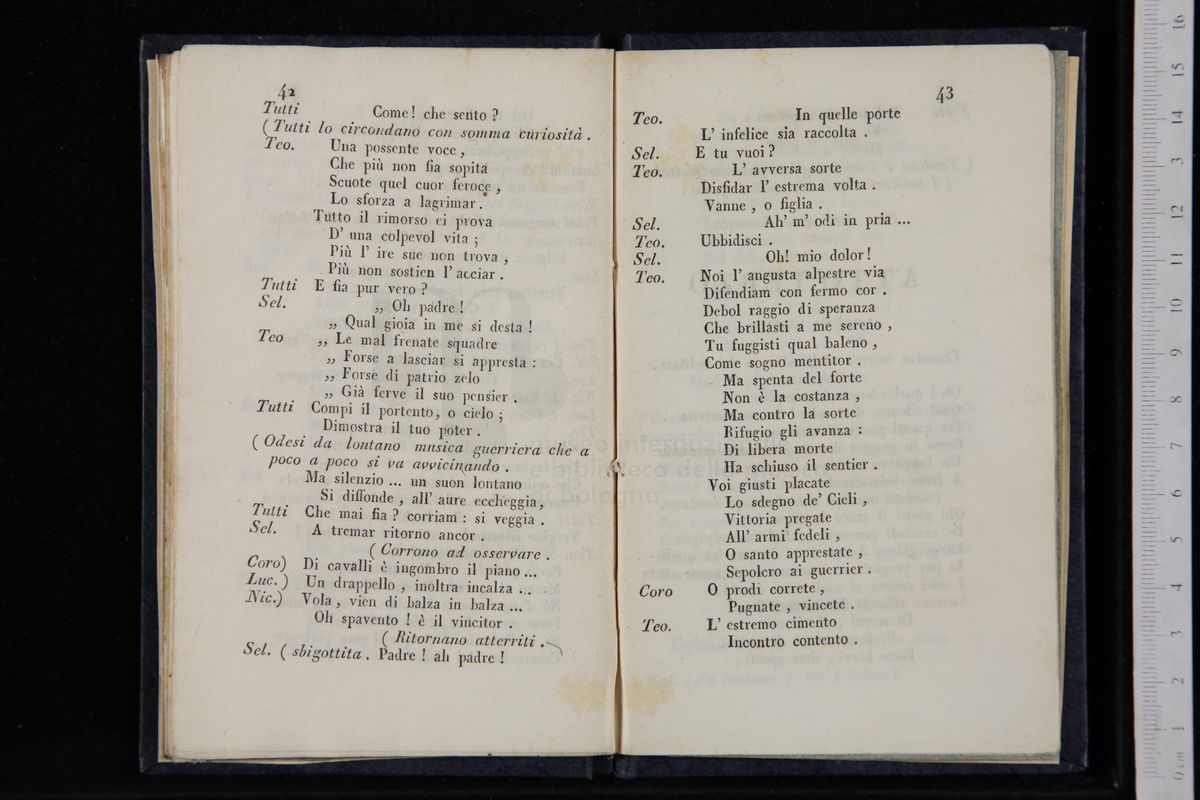 42
Tutti Come! che sento ?
( Tutti lo circondano con somma curiosità .
Teo. Una possente voce ,
Che più non fia sopita
Scuote quel cuor feroce ,
Lo sforza a lagrimar .
Tutto il rimorso ei prova
D' una colpevol vita ;
Più l' ire sue non trova ,
Più non sostien l' acciar .
Tutti E fia pur vero ?
Sel. „ Oh padre !
„ Qual gioia in me si desta !
Teo „ Le mal frenate squadre
„ Forse a lasciar si appresta :
„ Forse di patrio zelo
„ Già ferve il suo pensier .
Tutti Compi il portento, o cielo ;
Dimostra il tuo poter .
( Odesi da lontano musica guerriera che a
poco a poco si va avvicinando .
Ma silenzio ... un suon lontano
Si diffonde , all' aure eccheggia,
Tutti Che mai fia ? corriam : si veggia .
Sel. A tremar ritorno ancor .
( Corrono ad osservare .
Coro) Di cavalli è ingombro il piano ...
Luc. ) Un drappello , inoltra incalza ...
Nic.) Vola , vien di balza in balza ...
Oh spavento ! è il vincitor .
( Ritornano atterriti .
Sel. ( sbigottita . Padre ! ah padre !
43
Teo. In quelle porte
L' infelice sia raccolta .
Sel. E tu vuoi ?
Teo. L' avversa sorte
Disfidar l' estrema volta .
Vanne , o figlia .
Sel. Ah' m' odi in pria ...
Teo. Ubbidisci .
Sel. Oh! mio dolor !
Teo. Noi l' angusta alpestre via
Difendiam con fermo cor .
Debol raggio di speranza
Che brillasti a me sereno ,
Tu fuggisti qual baleno ,
Come sogno mentitor .
Ma spenta del forte
Non è la costanza ,
Ma contro la sorte
Rifugio gli avanza :
Di libera morte
Ha schiuso il sentier .
Voi giusti placate
Lo sdegno de' Cieli ,
Vittoria pregate
All' armi fedeli ,
O santo apprestate ,
Sepolcro ai guerrier .
Coro O prodi correte ,
Pugnate , vincete .
Teo. L' estremo cimento
Incontro contento .
museo internazionale
e biblioteca della musica
di bologna
0 cm 1 2 3 4 5 6 7 8 9 10 11 12 13 14 15 16